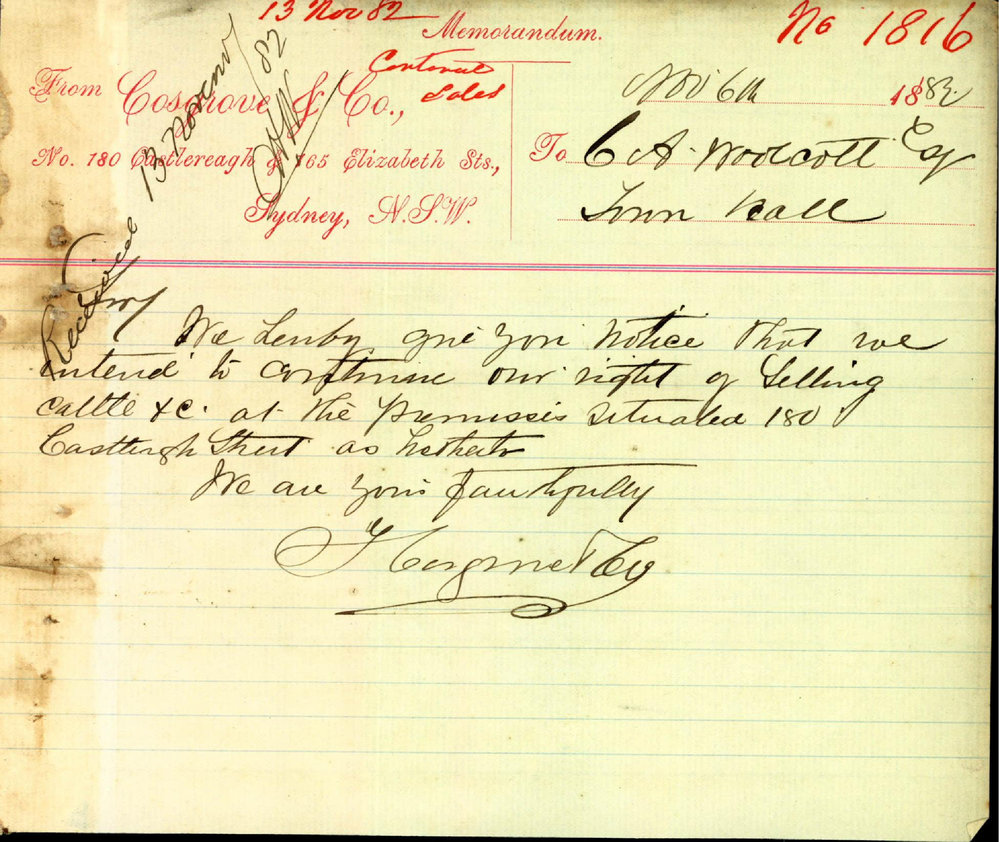 13 Nov 82
No 1816
Memorandum.
Cattle
Sales
From Cosgrove & Co.,
No. 180 Castlereagh & 165 Elizabeth Sts.,
Sydney, N.S.W.
Nov 6th 1882.
To C A. Woolcott Esq
Town Hall
Received 13 Nov
82
Sir/
We hereby give you notice that we
intend to continue our right of Selling
Cattle &c. at the premisses situated 180
Castlergh Street as hertheto
We are yours faithfully
Cosgrove & Co